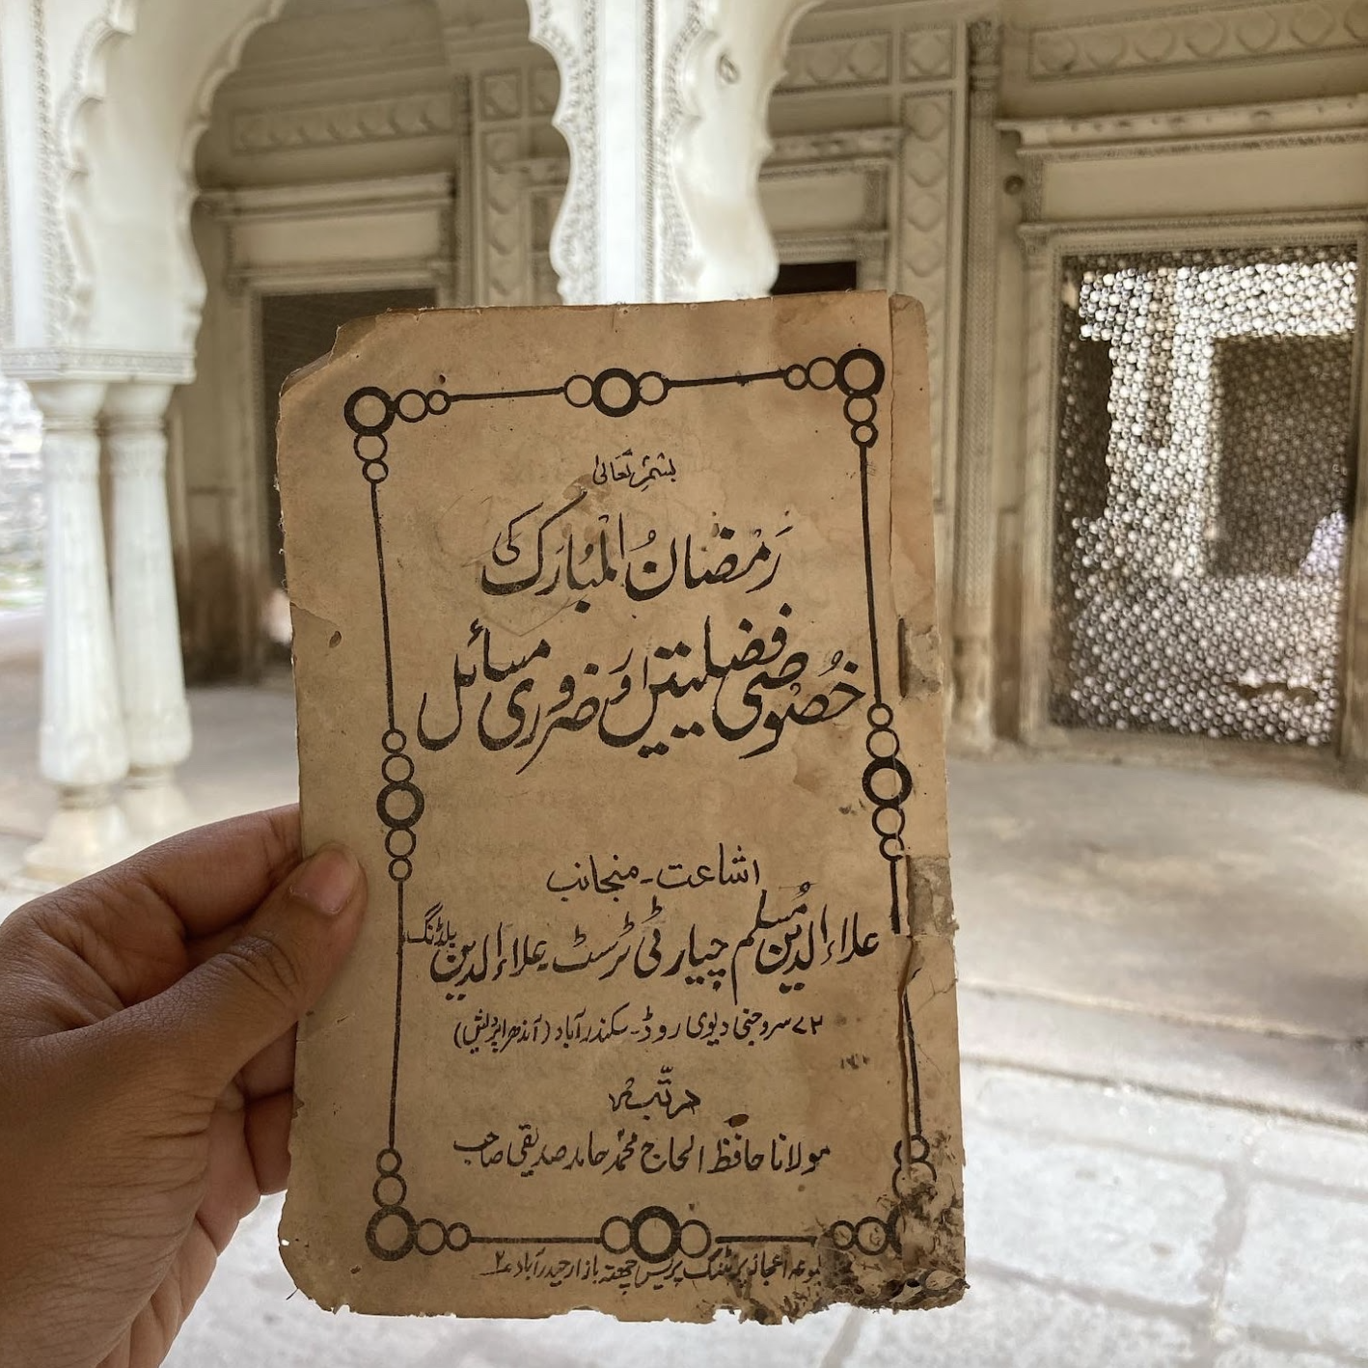 بِسْمِہٖ تَعَالٰی
رَمْضَانُ الْمُبَارَک کی
خُصُوصی فضلیتیں اَور ضروری مسائل
اشاعت ـ منجانب
علاءالدین مُسلم چیارٹی ٹرسٹ ـ علاءالدین بلڈنگ
۷۲ سروجنی دیوی روڈ ـ سکندرآباد (آندھراپردیش)
مرتّبہ
مولانا حافظ الحاج محمد حامد صدیقی صاحب
اعجاز پرنٹنگ پریس چھتہ بازار حیدرآباد ۲